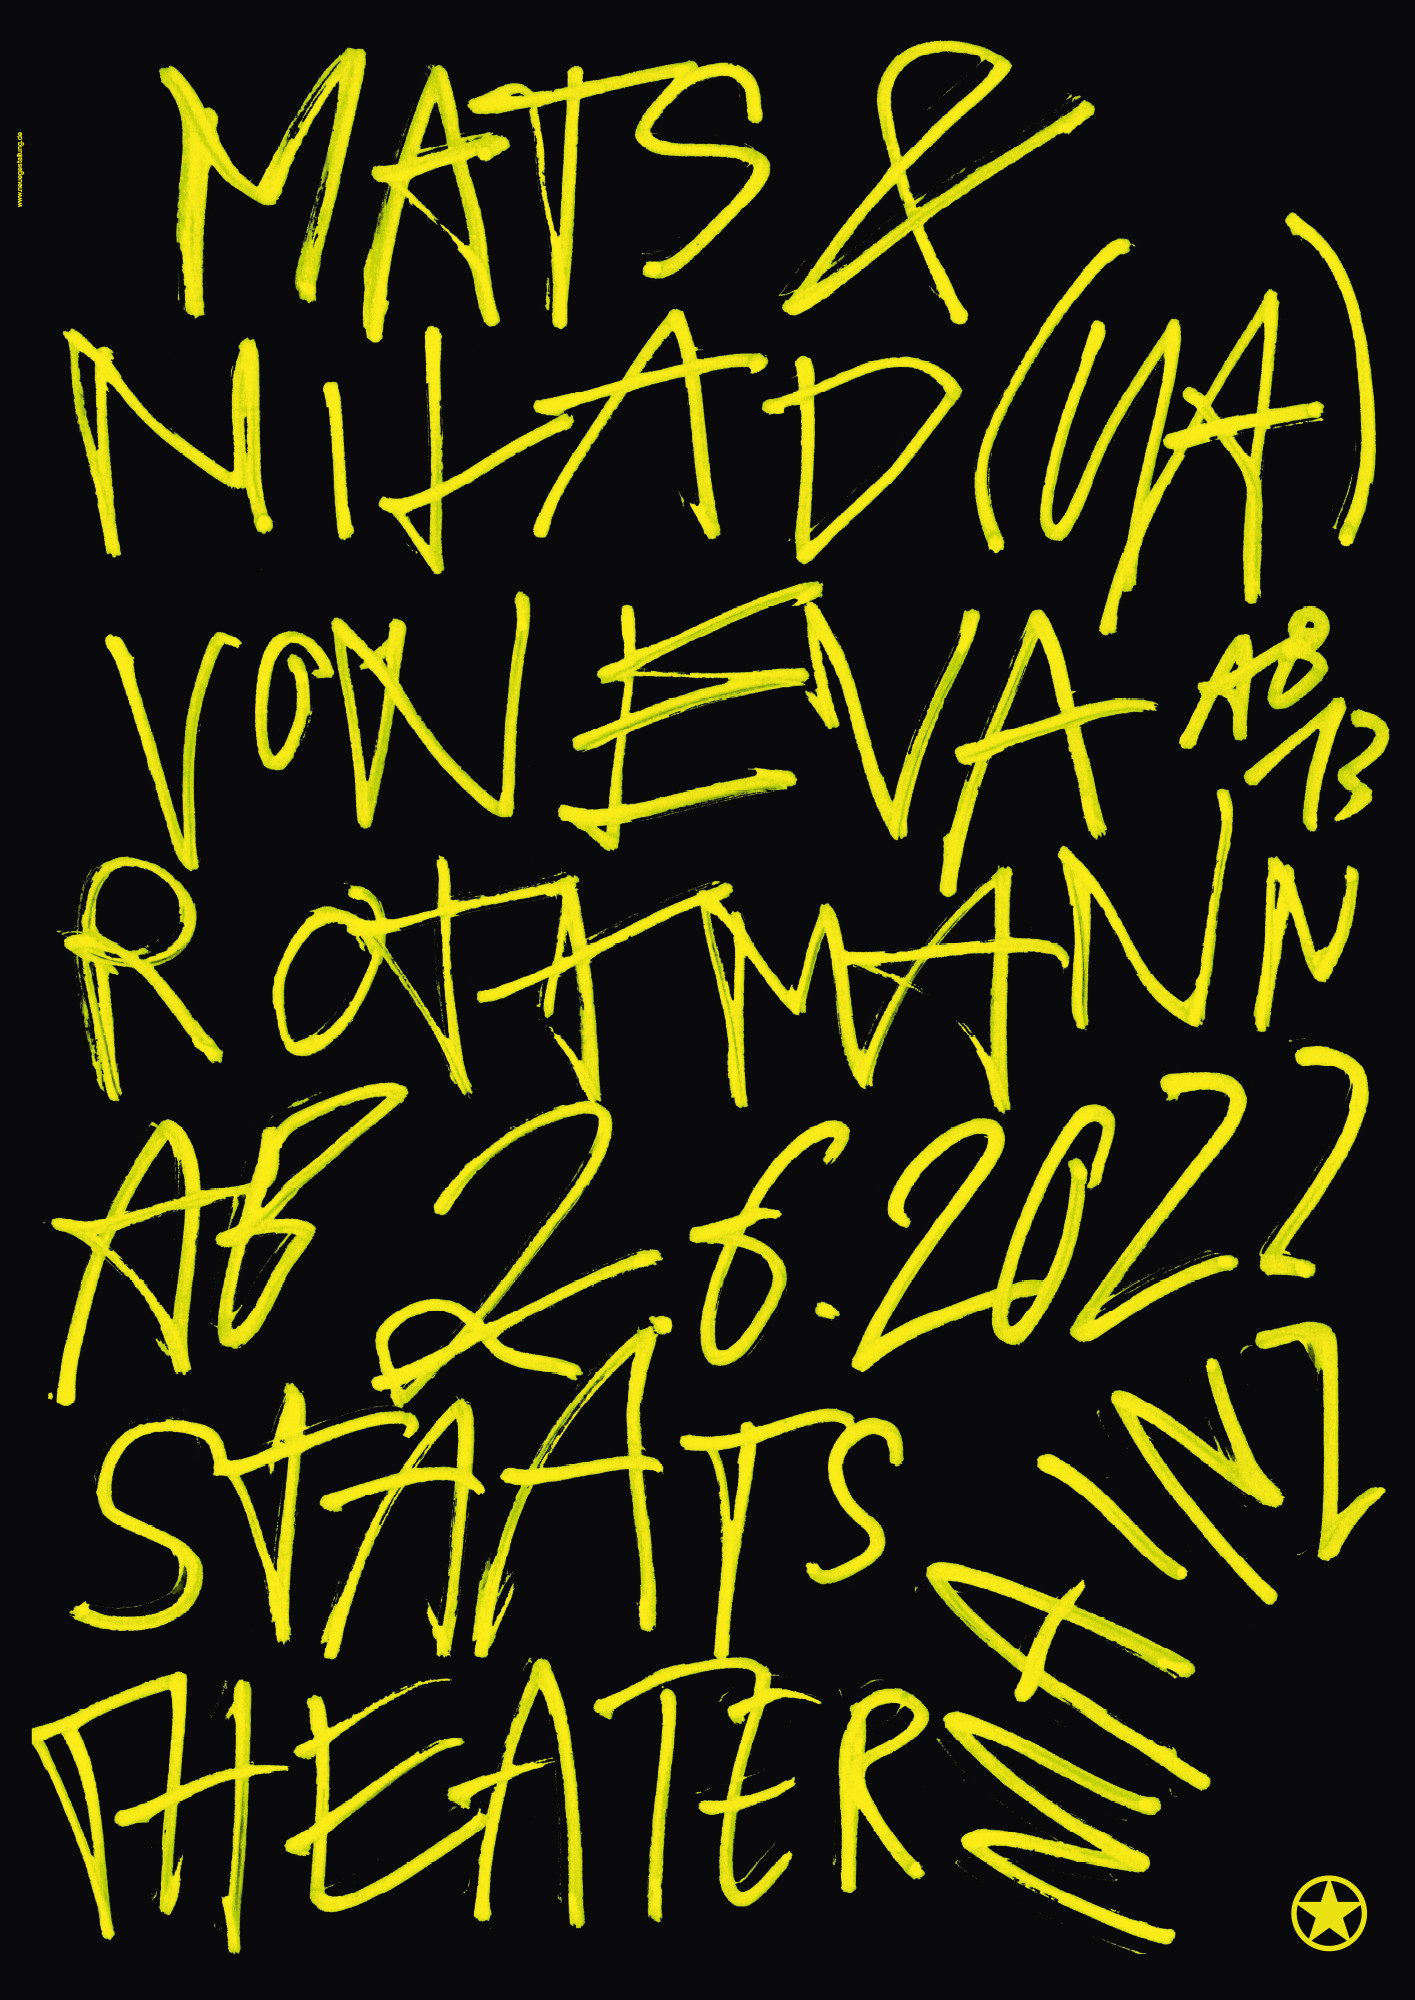 www.neuegestaltung.de
MATS &
MILAD (UA)
VON EVA
AB 13
ROTTMANN
AB 2 6.2022
STAATS
THEATER MAINZ